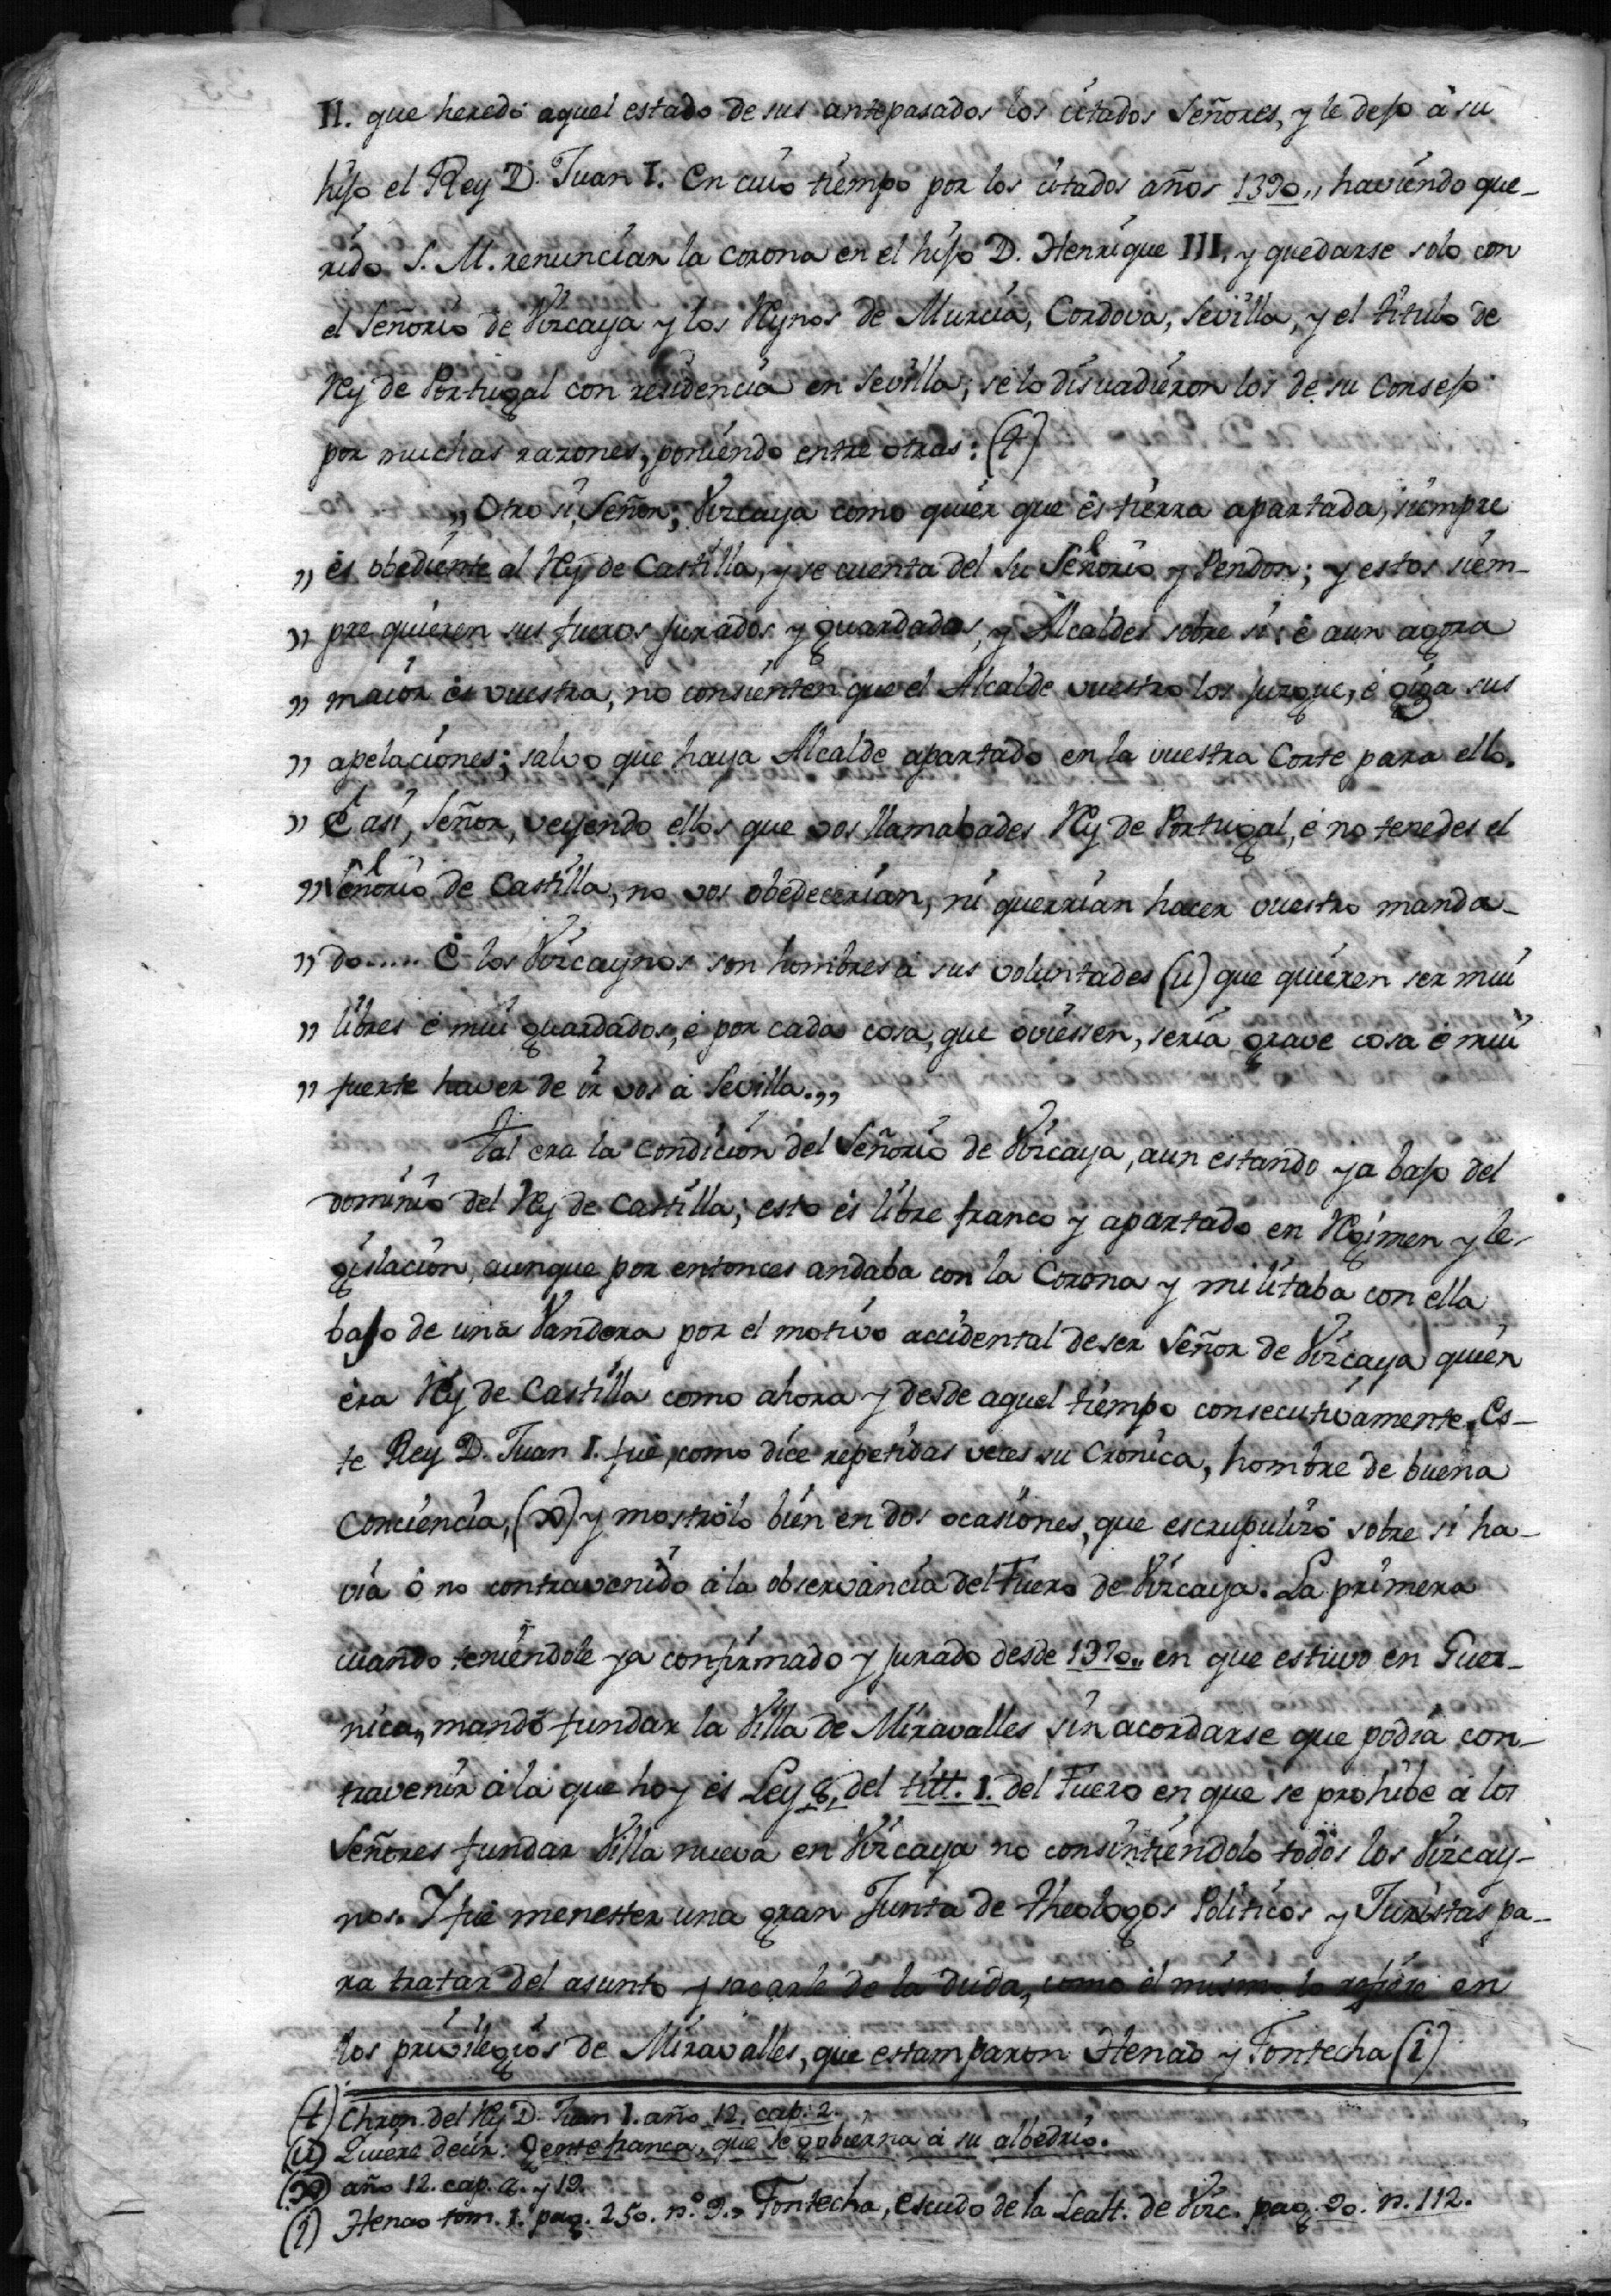 II. que heredó aquel estado de sus antepasados los citados Señores, y le dejo à su
hijo el Rey D. Juan I. En cuio tiempo por los citados años 1390,, haviendo que-
rido S. M. renunciar la corona en el hijo D. Henrique III, y quedarse solo con
el Señorio de Vizcaya y los Rynos de Murcia, Cordova, Sevilla, y el titulo de
Rey de Portugal con residencia en Sevilla; se lo disuadieron los de su Consejo
por muchas razones, poniendo entre otras: (t)
,, Otro si, Señor, Vizcaya como quier que és tierra apartada, siempre
,, és obediente al Rey de Castilla, y se cuenta del su Señorio y Pendon; y estos siem-
,, pre quieren sus fueros jurados y guardados, y Alcaldes sobre sí: é aun agora
,, maior és vuestra, no consienten que el Alcalde vuestro los juzgue, é oiga sus
,, apelaciones; salvo que haya Alcalde apartado en la vuestra Corte para ello.
,, E así, Señor, veyendo ellos que vos llamabades Rey de Portugal, é no tenedes el
,, Señorio de Castilla, no vos obedecerían, ni querrían hacer vuestro manda-
,, do..... E los Vizcaynos son hombres à sus voluntades (u) que quieren ser mui
,, libres é mui guardados, é por cada cosa, que oviessen, sería grave cosa é mui
,, fuerte haver de ir vos à Sevilla.,,
Tal era la condicion del Señorio de Vizcaya, aun estando ya bajo del
dominio del Rey de Castilla; esto és libre franco y apartado en Regimen y le-
gislacion, aunque por entonces andaba con la Corona y militaba con ella
bajo de una Vandera por el motivo accidental de ser Señor de Vizcaya quien
era Rey de Castilla como ahora y desde aquel tiempo consecutivamente. Es-
te Rey D. Juan I. fué, como dice repetidas veces su Cronica, hombre de buena
Conciencia, (x) y mostrólo bien en dos ocasiones, que escrupulizó sobre si ha-
via ó no contravenido à la observancia del Fuero de Vizcaya. La primera
cuando teniendole ya confirmado y jurado desde 1370,, en que estuvo en Guer-
nica, mandó fundar la Villa de Miravalles sin acordarse que podía con-
travenir à la que hoy és Ley 8, del titt. 1. del Fuero en que se prohibe à los
Señores fundar Villa nueva en Vizcaya no consintiendolo todos los Vizcay-
nos. Y fué menester una gran Junta de Theologos Politicos y Juristas pa-
ra tratar del asunto y sacarle de la duda, como él mismo lo refiere en
los privilegios de Miravalles, que estamparon Henao y Fontecha (i)
(t) Chron. del Rey D. Juan I. año 12. cap. 2.
(u) Quiere decir: Gente franca, que se gobierna à su albedrio.
(x) año 12. cap. 2. y 19.
(i) Henao tom. 1. pag. 250. n.º 9., Fontecha, Escudo de la Lealt. de Vizc. pag. 90. n. 112.